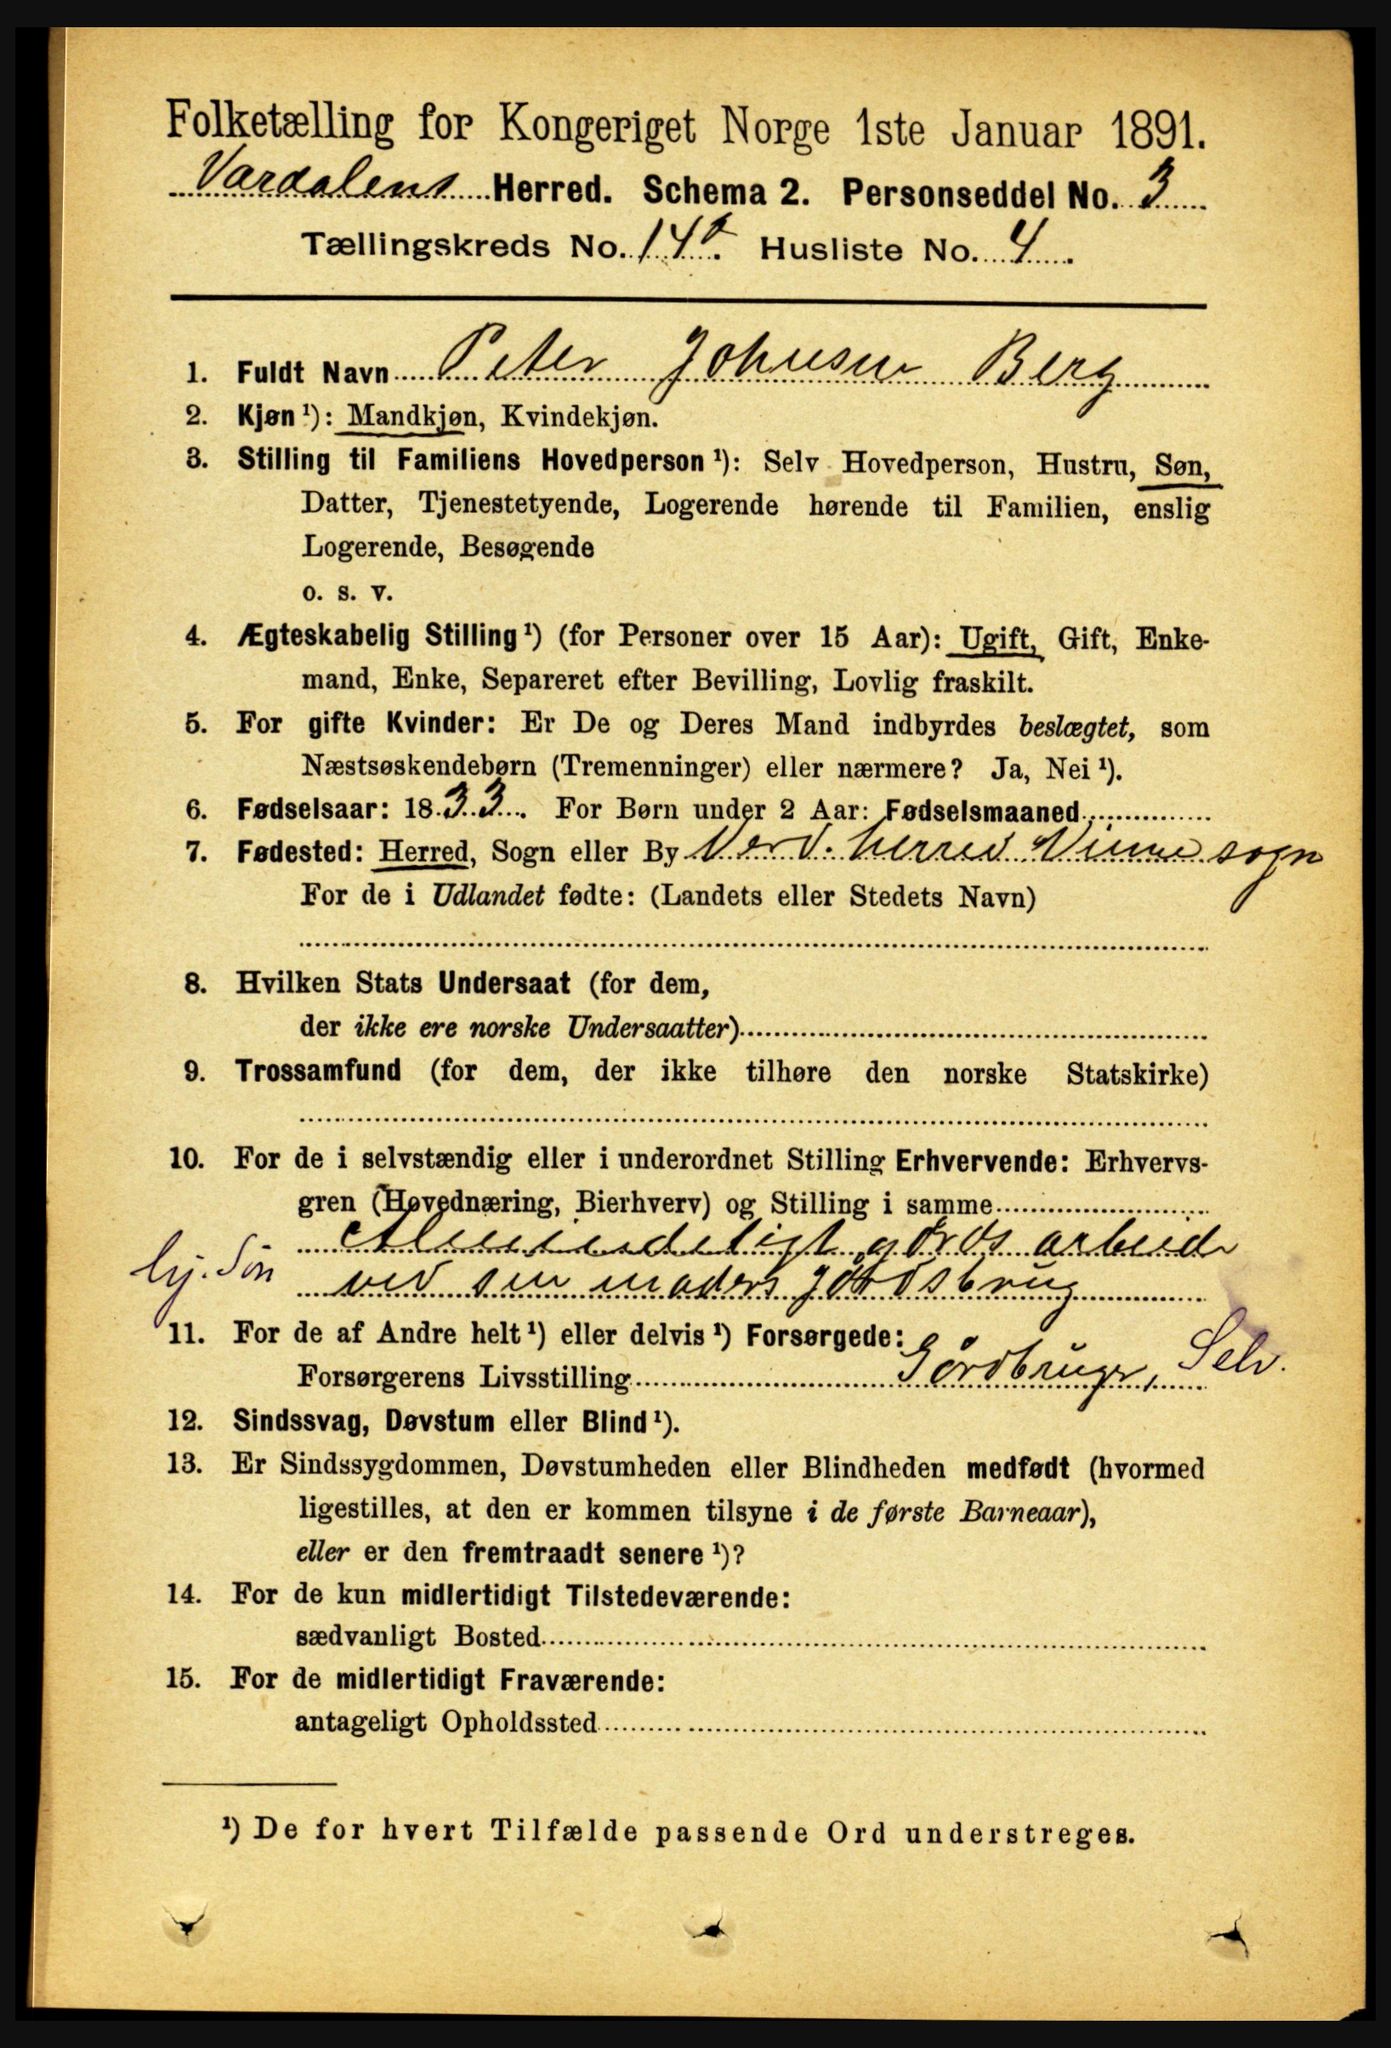 Folketælling for Kongeriget Norge 1ste Januar 1891.
Værdalens Herred. Schema 2. Personseddel No. 3
Tællingskreds No. 14 Husliste No. 4.
1. Fuldt Navn Peter Johnsen Berg
2. Kjøn ¹): Mandkjøn, Kvindekjøn.
3. Stilling til Familiens Hovedperson ¹): Selv Hovedperson, Hustru, Søn,
Datter, Tjenestetyende, Logerende hørende til Familien, enslig
Logerende, Besøgende
o. s. v.
4. Ægteskabelig Stilling ¹) (for Personer over 15 Aar): Ugift, Gift, Enke-
mand, Enke, Separeret efter Bevilling, Lovlig fraskilt.
5. For gifte Kvinder: Er De og Deres Mand indbyrdes beslægtet, som
Næstsøskendebørn (Tremenninger) eller nærmere? Ja, Nei ¹).
6. Fødselsaar: 1833. For Børn under 2 Aar: Fødselsmaaned
7. Fødested: Herred, Sogn eller By Verd. herred Vinne sogn
For de i Udlandet fødte: (Landets eller Stedets Navn)
8. Hvilken Stats Undersaat (for dem,
der ikke ere norske Undersaatter)
9. Trossamfund (for dem, der ikke tilhøre den norske Statskirke)
10. For de i selvstændig eller i underordnet Stilling Erhvervende: Erhvervs-
gren (Hovednæring, Bierhverv) og Stilling i samme
Almindeligt gårds arbeide
hj. Søn ved sin moders jordsbrug
11. For de af Andre helt ¹) eller delvis ¹) Forsørgede:
Forsørgerens Livsstilling Gårdbruger, Selv.
12. Sindssvag, Døvstum eller Blind ¹).
13. Er Sindssygdommen, Døvstumheden eller Blindheden medfødt (hvormed
ligestilles, at den er kommen tilsyne i de første Barneaar),
eller er den fremtraadt senere ¹)?
14. For de kun midlertidigt Tilstedeværende:
sædvanligt Bosted
15. For de midlertidigt Fraværende:
antageligt Opholdssted
¹) De for hvert Tilfælde passende Ord understreges.